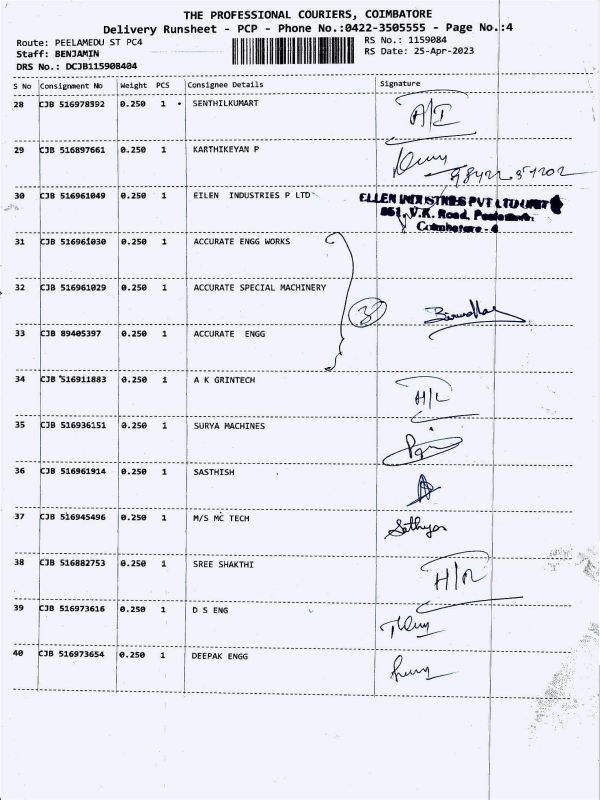 THE PROFESSIONAL COURIERS, COIMBATORE
Delivery Runsheet - PCP - Phone No.:0422-3505555 - Page No.:4
Route: PEELAMEDU ST PC4
RS No.: 1159084
Staff: BENJAMIN
RS Date: 25-Apr-2023
DRS No.: DCJB115908404
S No Consignment No Weight PCS Consignee Details Signature
28 CJB 516978592 0.250 1 SENTHILKUMART
29 CJB 516897661 0.250 1 KARTHIKEYAN P
30 CJB 516961049 0.250 1 EILEN INDUSTRIES P LTD ELLEN INDUSTRIES PVT LTD UNIT
851, V.K. Road, Peelamedu
Coimbatore - 4
31 CJB 516961030 0.250 1 ACCURATE ENGG WORKS
32 CJB 516961029 0.250 1 ACCURATE SPECIAL MACHINERY
33 CJB 89405397 0.250 1 ACCURATE ENGG
34 CJB 516911883 0.250 1 A K GRINTECH H/L
35 CJB 516936151 0.250 1 SURYA MACHINES
36 CJB 516961914 0.250 1 SASTHISH
37 CJB 516945496 0.250 1 M/S MC TECH Sathya
38 CJB 516882753 0.250 1 SREE SHAKTHI H/R
39 CJB 516973616 0.250 1 D S ENG
40 CJB 516973654 0.250 1 DEEPAK ENGG